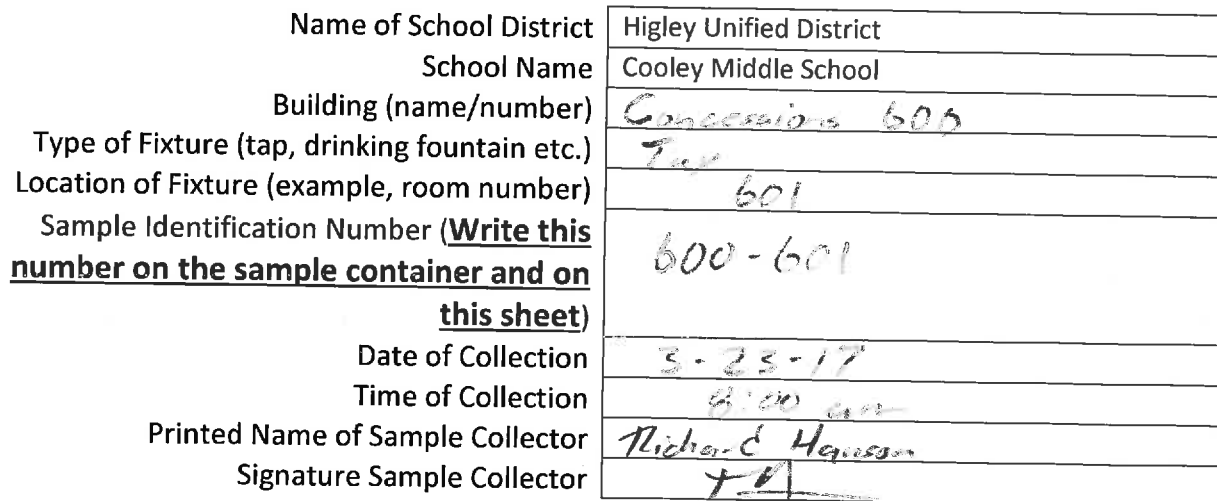 Name of School District Higley Unified District
School Name Cooley Middle School
Building (name/number) Concessions 600
Type of Fixture (tap, drinking fountain etc.) Tap
Location of Fixture (example, room number) 601
Sample Identification Number (Write this
number on the sample container and on
this sheet) 600-601
Date of Collection 3-23-17
Time of Collection 8:00 am
Printed Name of Sample Collector Richard
Signature Sample Collector